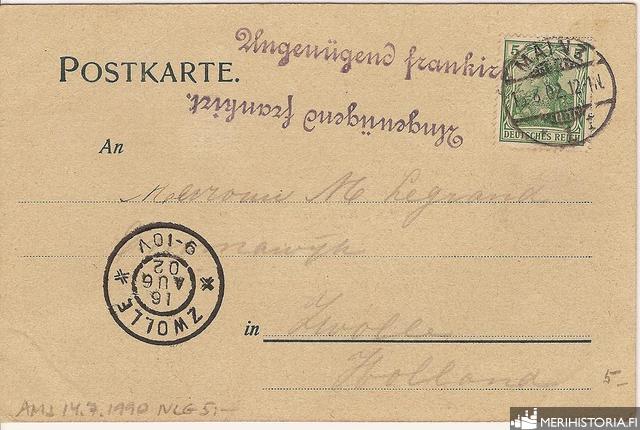 Ungenügend frankirt
POSTKARTE.
Ungenügend frankirt.
5
MAINZ
DEUTSCHES REICH
An
Mevrouw M Legrand
ZWOLLE
16
AUG
02
9-10V
in
Zwolle
Holland
5-
AMS 14.7.1990 NLG 5,-
MERIHISTORIA.FI